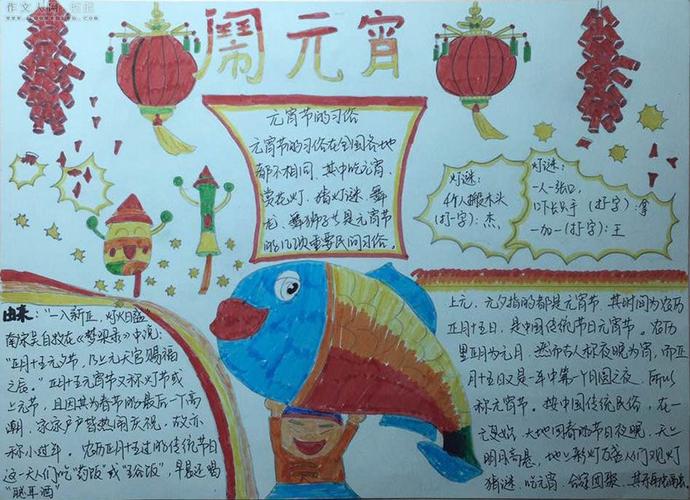 闹元宵
元宵节的习俗
元宵节的习俗在全国各地
都不相同，其中吃元宵、
赏花灯、猜灯谜、舞
龙、舞狮子等是元宵节
的几项重要民间习俗。
灯谜：
4个人搬木头
(打一字)：杰、
灯谜：
一人一张口，
口下长只手 (打一字)：拿
一加一(打一字)：王
由来：“一入新正，灯火日盛
南宋吴自牧在《梦梁录》中说：
“正月十五元夕节，乃上元天官赐福
之辰。”正月十五元宵节又称灯节或
上元节，且因其为春节的最后一个高
潮，家家户户皆热闹庆祝，故亦
称小过年。农历正月十五过的传统节日
这一天人们吃“药饭”或“五谷饭”，早晨还喝
“聪耳酒”
上元、元夕指的都是元宵节，其时间为农历
正月十五日，是中国传统节日元宵节。农历
里正月为元月，然而古人称夜晚为宵，而正
月十五日又是一年中第一个月圆之夜，所以
称元宵节。按中国传统民俗，在一
元复始，大地回春的节日夜晚，天上
明月高悬，地上彩灯万盏人们观灯
猜谜、吃元宵、合家团聚、其乐融融